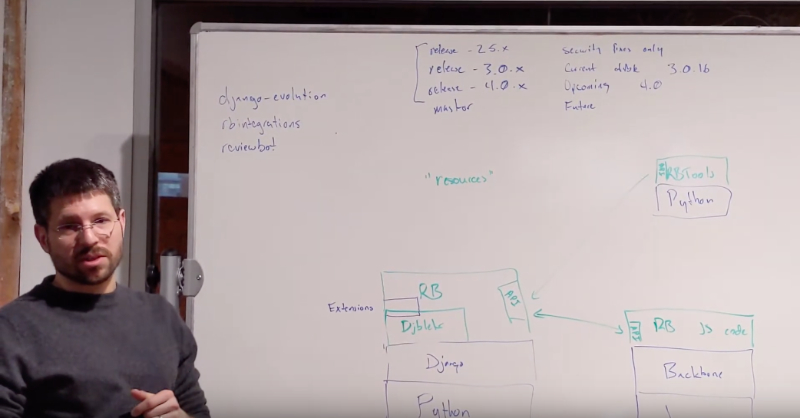 release - 2.5.x Security fixes only
release - 3.0.x Current dvlk 3.0.16
release - 4.0.x Upcoming 4.0
master Future
django-evolution
rbintegrations
reviewbot
"resources"
RBTools
Python
RB
API
Extensions
Djblets
Django
Python
API RB JS code
Backbone